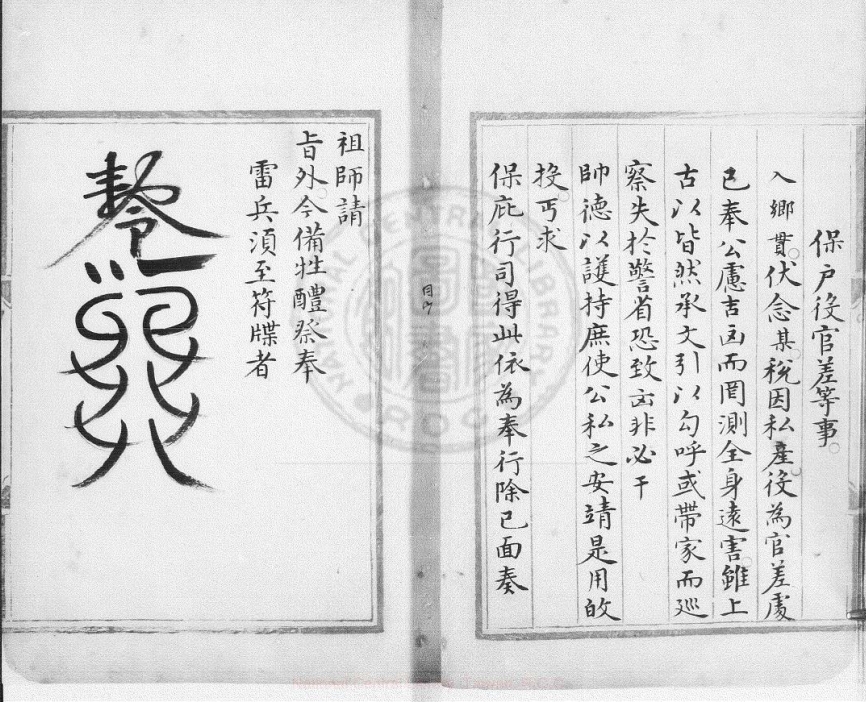 保户役官差等事
入鄉貫伏念某税因私產役為官差處
已奉公慮吉凶而罔測全身遠害雖上
古以皆然承文引以勾呼或帶家而巡
察失於警省恐致凶非必干
帥德以護持庶使公私之安靖是用皈
投丐求
保庇行司得此依為奉行除已面奏
祖師請
旨外今備牲醴祭奉
雷兵湏至符牒者
NATIONAL CENTRAL LIBRARY
ROC